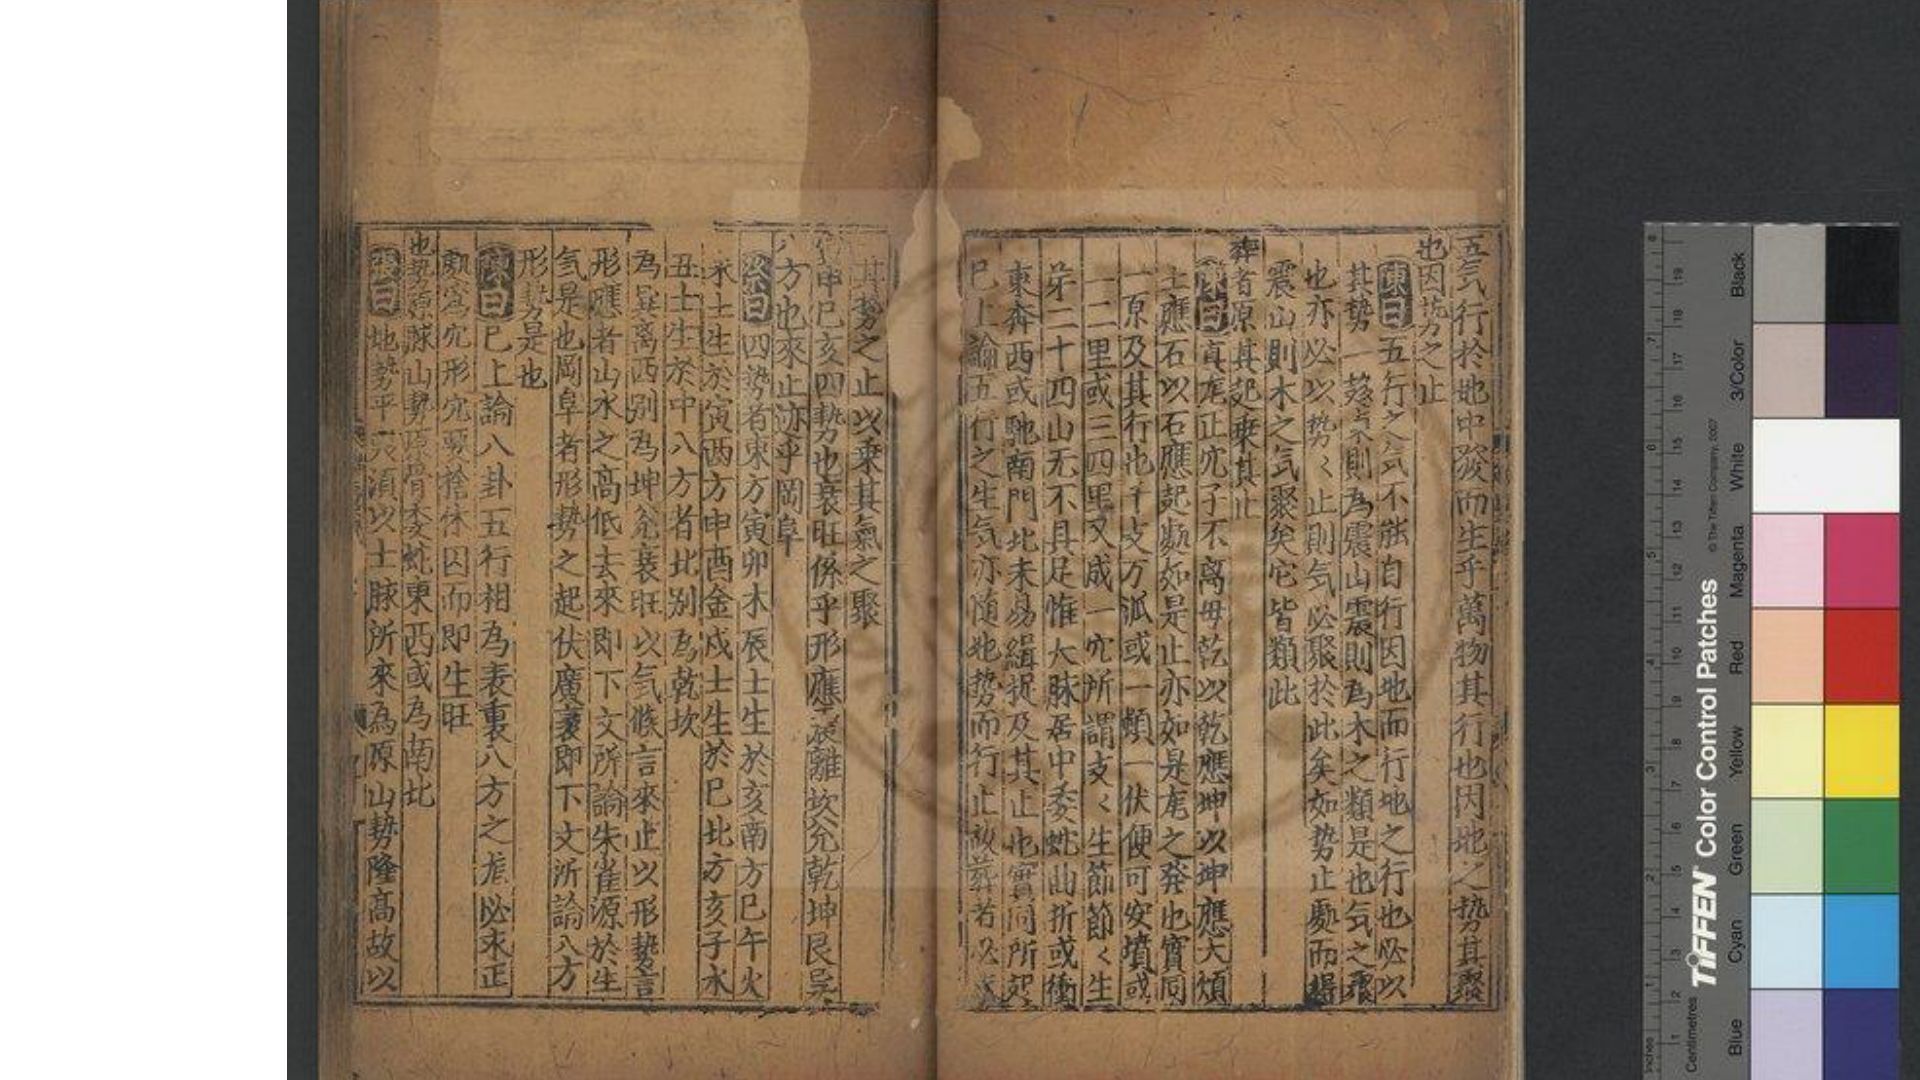 五气行於地中發而生乎萬物其行也因地之势其聚
也因势之止
陳曰五行之气不能自行因地而行地之行也必以
其势一發東則為震山震則為木之類是也气之聚
也亦必以势〻止則气必聚於此矣如势止䖏而得
震山則木之气聚矣它皆類此
葬者原其起乗其止
真龙正穴子不离母乾以乾應坤以坤應大煩
土應石以石應起㸃如是止亦如是龙之発也實同
一原及其行也千支万派或一頓一伏便可安墳或
一二里或三四里又成一穴所謂支〻生節節〻生
芽二十四山无不具足惟大脉居中委蛇曲折或衝
東奔西或馳南門北未易緝捉及其止也實同所起
巳上論五行之生气亦随地势而行止故葬者必
其势之止以乗其氣之聚
寅申巳亥四势也衰旺係乎形應震離坎兊乾坤艮巽
八方也來止迹乎岡阜
梁曰四势者東方寅卯木辰土生於亥南方巳午火
未土生於寅西方申酉金戌土生於巳北方亥子水
丑土生於申八方者北别為乾坎
為巽离西别為坤兊衰旺以气候言來止以形势言
形應者山水之高低去來即下文所論朱雀源於生
气是也岡阜者形势之起伏廣袤即下文所論八方
形势是也
陳曰巳上論八卦五行相為表裏八方之龙必求正
穴形穴要捨休囚而即生旺
也势原脉山势原骨委蛇東西或為南北
曰地势平夷須以土脉所來為原山势隆高故以
Black
3/Color
White
Magenta
Red
Yellow
Green
Cyan
Blue
TIFFEN Color Control Patches
© The Tiffen Company, 2007
Centimetres
Inches